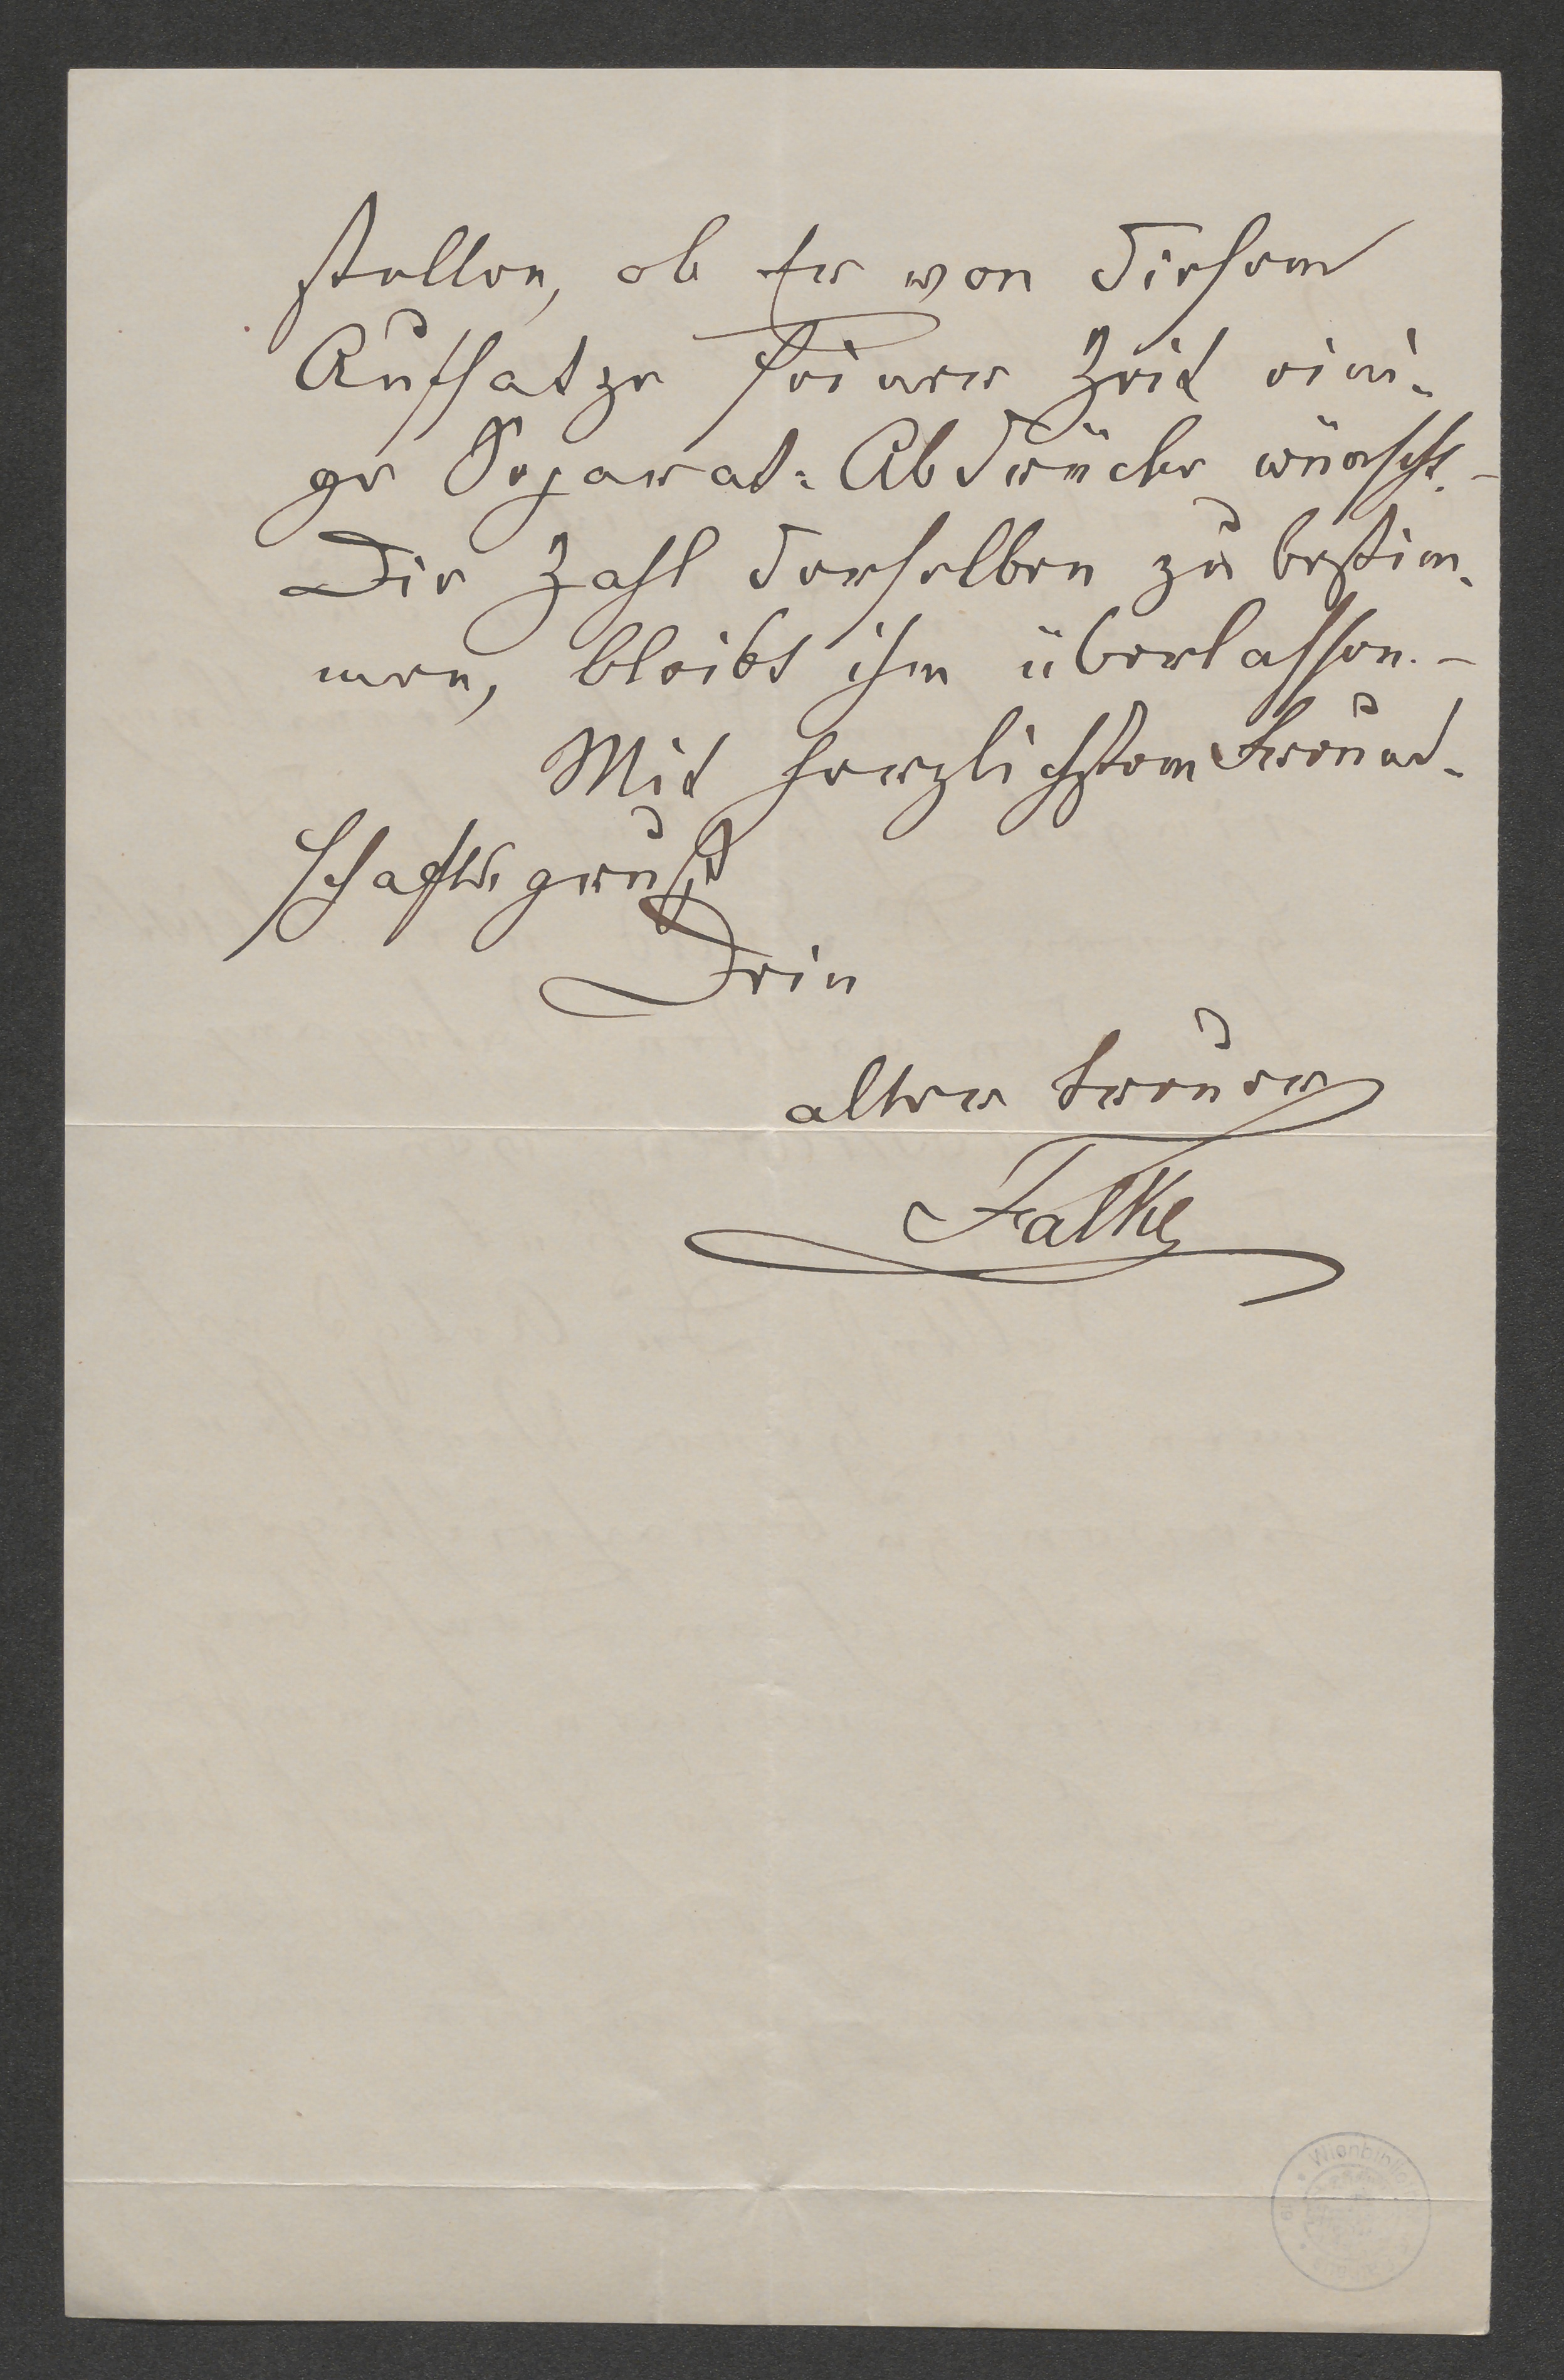 stellen, ob Er von diesem
Aufsatze seiner Zeit eini-
ge Separat-Abdrücke wünscht. –
Die Zahl derselben zu bestim-
men, bleibt ihm überlassen. –
Mit herzlichstem Freund-
schaftsgruß
Dein
alter treuer
Falke
Wienbibliothek